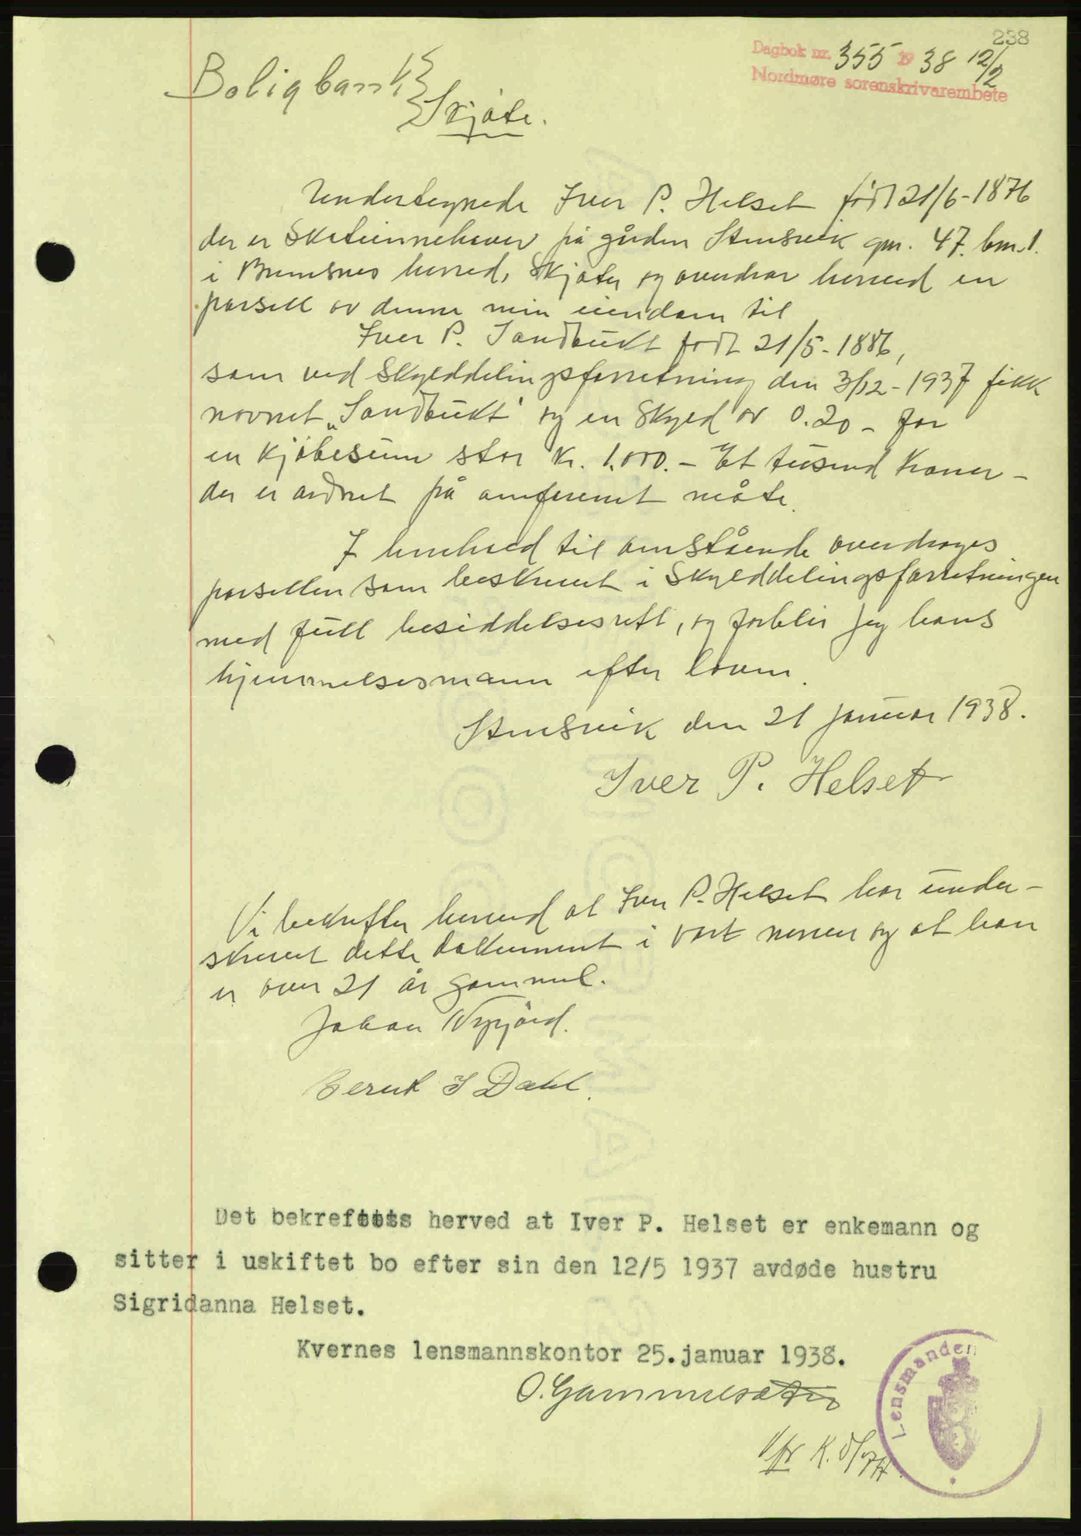 238
Dagbok nr. 355 1938 12/2
Nordmøre sorenskrivarembete
Skjøte.
Undertegnede Iver P. Helset født 21/6-1876
der er Skøteinnehaver på gården Stensvik gnr. 47. bnr. 1.
i Bremsnes herred, Skjøter og overdrar herved en
parsell av denne min eiendom til
Iver P. Sandbukt født 21/5-1886,
som ved Skylddelingsforretning den 3/12-1937 fikk
navnet "Sandbukt" og en Skyld av 0.20 - for
en kjøbesum stor kr. 1.000.- Et tusend kroner -
der er avgjort på omforenet måte.
I henhold til omstående overdrages
parsellen som beskrevet i Skylddelingsforretningen
med full besiddelsesrett, og forblir jeg hans
hjemmelsmann efter loven.
Stensvik den 21 januar 1938.
Iver P. Helset
Vi bekrefter herved at Iver P. Helset har under-
skrevet dette dokument i vårt nerver og at han
er over 21 år gammel.
Johan
Bernt I Dahl.
Det bekreftes herved at Iver P. Helset er enkemann og
sitter i uskiftet bo efter sin den 12/5 1937 avdøde hustru
Sigridanna Helset.
Kvernes lensmannskontor 25.januar 1938.
O. Gammelsæter
Lensmanden